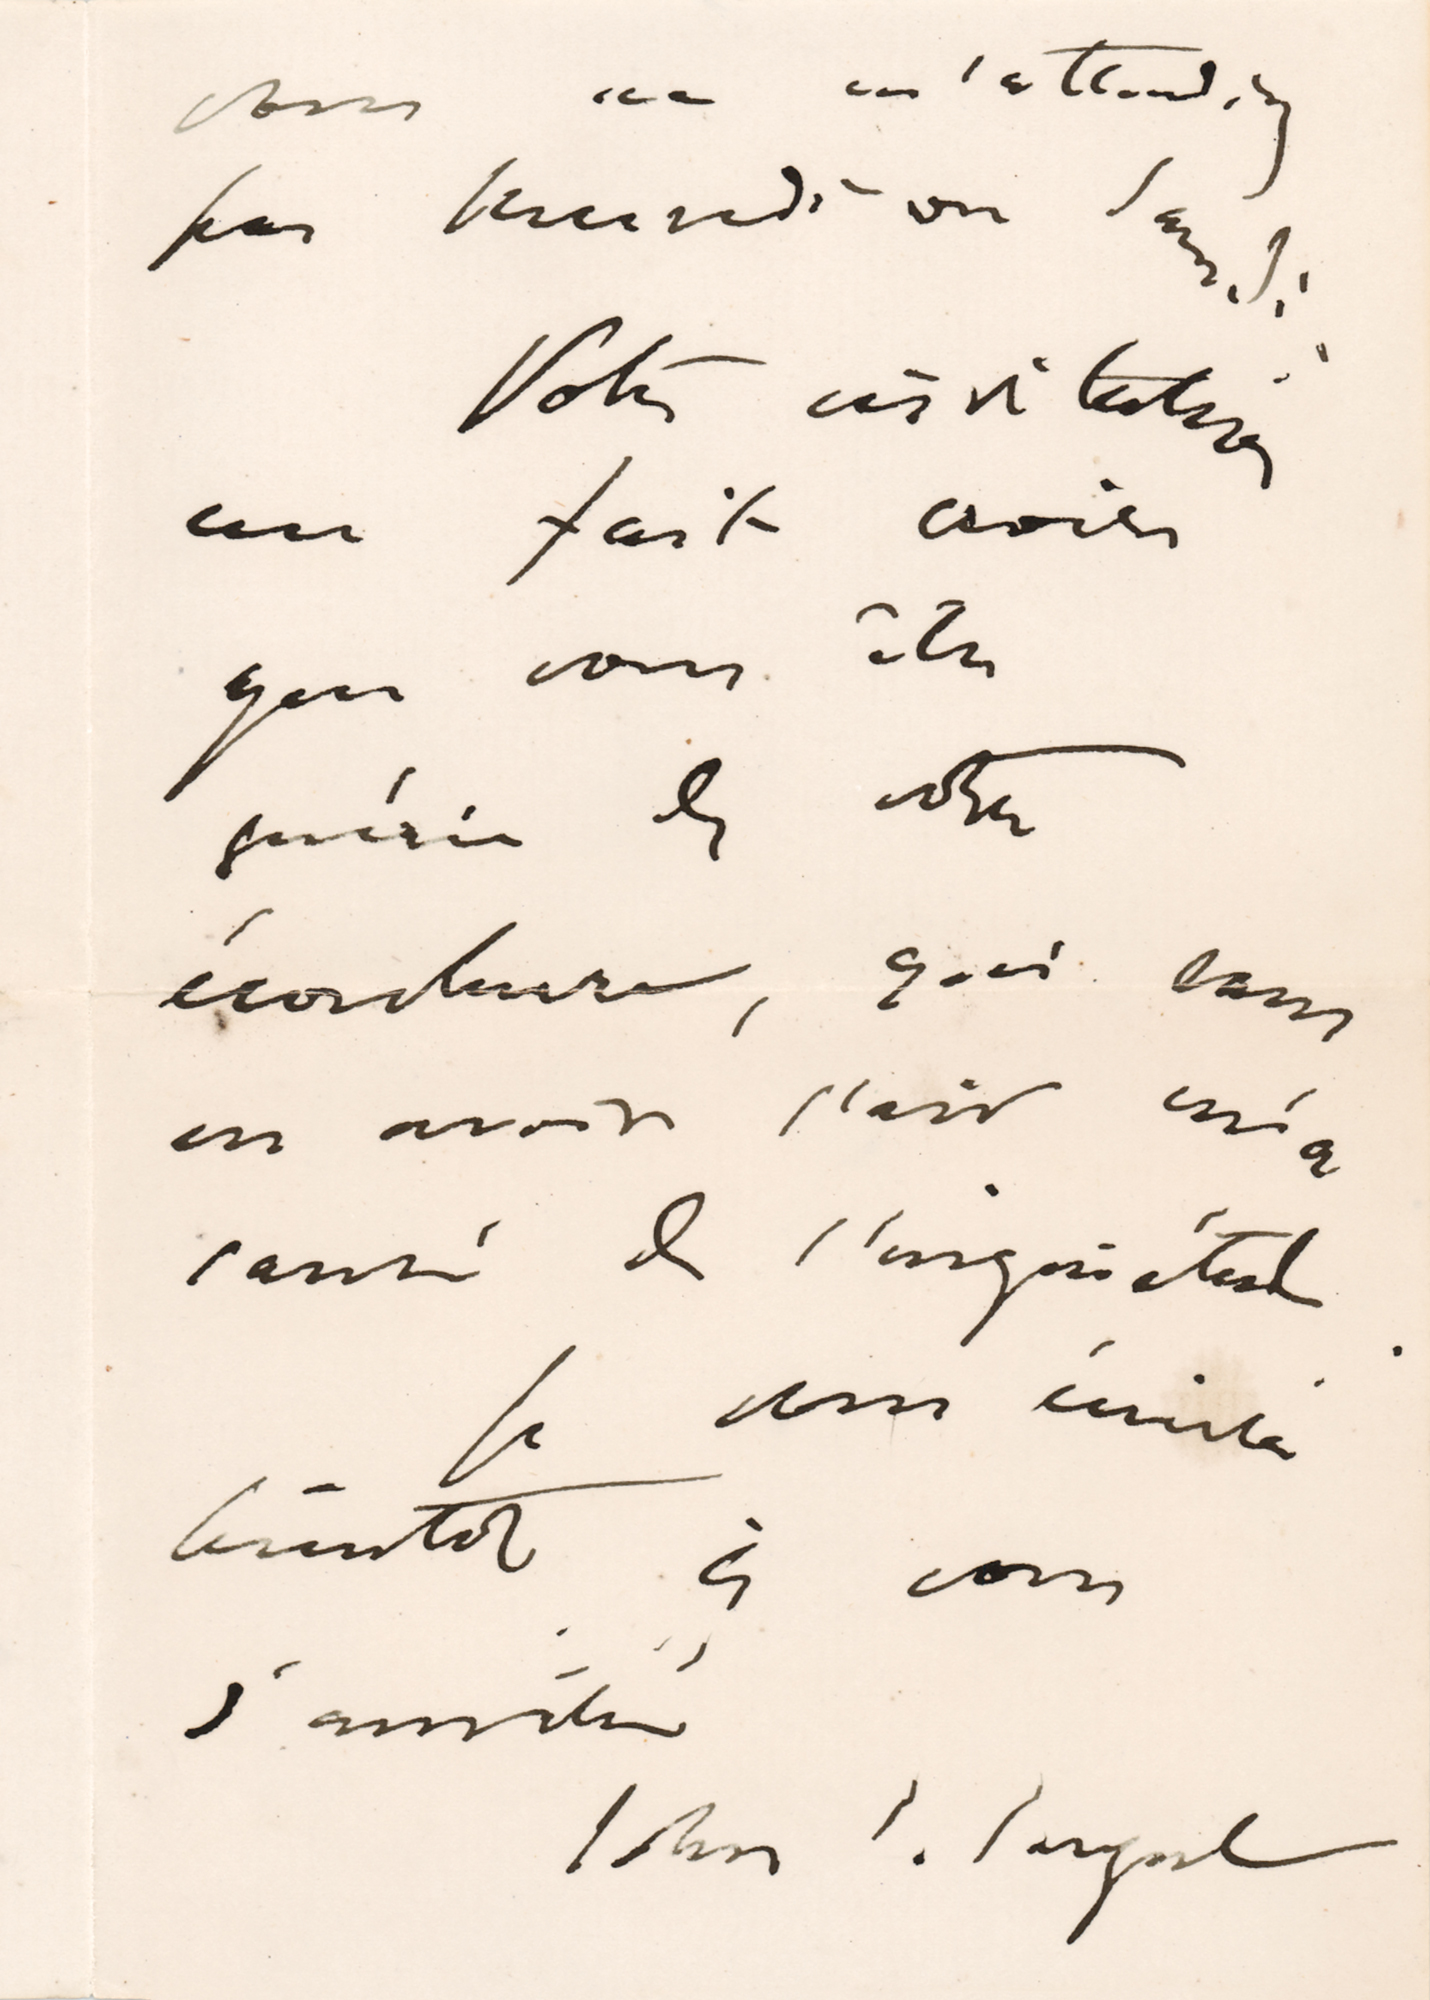 vous ne m'attendiez
pas vendredi ou samedi.
Votre invitation
me fait croire
que vous êtes
guérie de votre
écorchure, qui sans
en avoir l'air m'a
causé de l'inquiétude.
Je vous écrirai
bientôt et vous
d'amitié
John S. Sargent